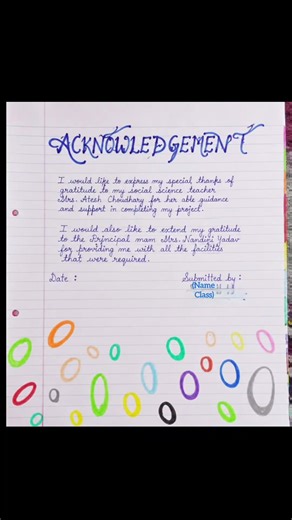 ACKNOWLEDGEMENT
I would like to express my special thanks of
gratitude to my social science teacher
Mrs. Atesh Choudhary for her able guidance
and support in completing my project.
I would also like to extend my gratitude
to the Principal mam Mrs. Nandini Yadav
for providing me with all the facilities
that were required.
Date :
Submitted by :
(Name
Class)